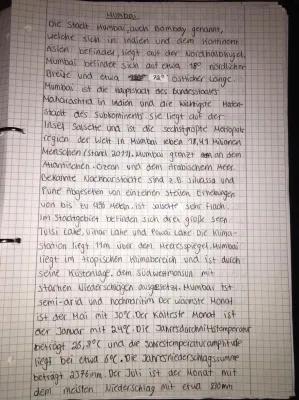 Mumbai
Die Stadt Mumbai, auch Bombay genannt,
welche sich in Indien und dem Kontinent
Asien befindet, liegt auf der Nordhalbkugel.
Mumbai befindet sich auf etwa 18° nördlicher
Breite und etwa 72° östlicher Länge.
Mumbai ist die Hauptstadt des Bundesstaates
Maharashtra in Indien und die wichtigste Hafen-
stadt des Subkontinents sie liegt auf der
Insel Salsette und ist die sechstgrößte Metropol-
region der Welt in Mumbai leben 18,41 Millionen
Menschen (Stand 2011). Mumbai grenzt an den
Atlantischen-Ozean und dem Arabischem Meer.
Bekannte Nachbarstädte sind z.B. Silvassa und
Pune Abgesehen von einzelnen steilen Erhebungen
von bis zu Metern, ist Salsette sehr flach.
Im Stadtgebiet befinden sich drei große Seen
Tulsi Lake, Vihar Lake und Powai Lake. Die Klima-
station liegt 11m über dem Meeresspiegel. Mumbai
liegt im tropischen Klimabereich und ist durch
seine Küstenlage, dem Südwestmonsun mit
starken Niederschlägen ausgesetzt. Mumbai ist
semi-arid und hochmaritim Der wärmste Monat
ist der Mai mit 30°C. Der kälteste Monat ist
der Januar mit 24°C. Die Jahresdurchnittstemperatur
beträgt 26,8°C und die Jahrestemperaturamplitude
liegt bei etwa 6°C. Die Jahresniederschlagssumme
beträgt 2376mm. Der Juli ist der Monat mit
dem meisten Niederschlag mit etwa